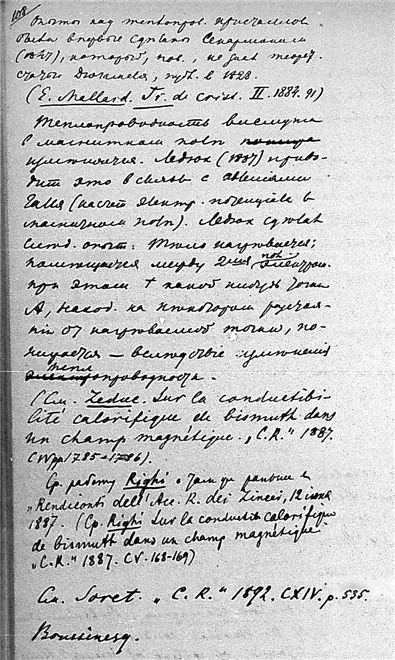 108
Опыты над теплопров. кристаллов
были впервые сделаны Сенармоном
(1847), который, пов., не знает
статьи Duhamel'я, 1828.
(E. Mallard. Tr. de crist. II. 1884. 91)
Теплопроводность висмута
в магнитном поле
изменяется. Ледюк (1887) приво-
дит это в связь с явлениями
Галля ( электр. потенциала в
магнитном поле). Ледюк сделал
след. опыт: Тело нагревается;
помещается между 2мя электром.
при этом t какой нибудь точки
A, наход. на некотором разстоя-
нии от нагреваемой точки, по-
нижается — вследствие изменения
теплопроводности.
(См. Leduc. Sur la conductibi-
lité calorifique de bismuth dans
un champ magnétique. „C. R." 1887.
CIV pp 1785–1786).
Ср. работу Righi о том же раньше в
Rendiconti dell' Acc. R. dei Lincei, 12 июня
1887. (Ср. Righi Sur la conductib. calorifique
de bismuth dans un champ magnétique
„C. R." 1887. CV. 168–169)
См. Soret. „C. R." 1892. CXIV. p. 535.
Boussinesq.